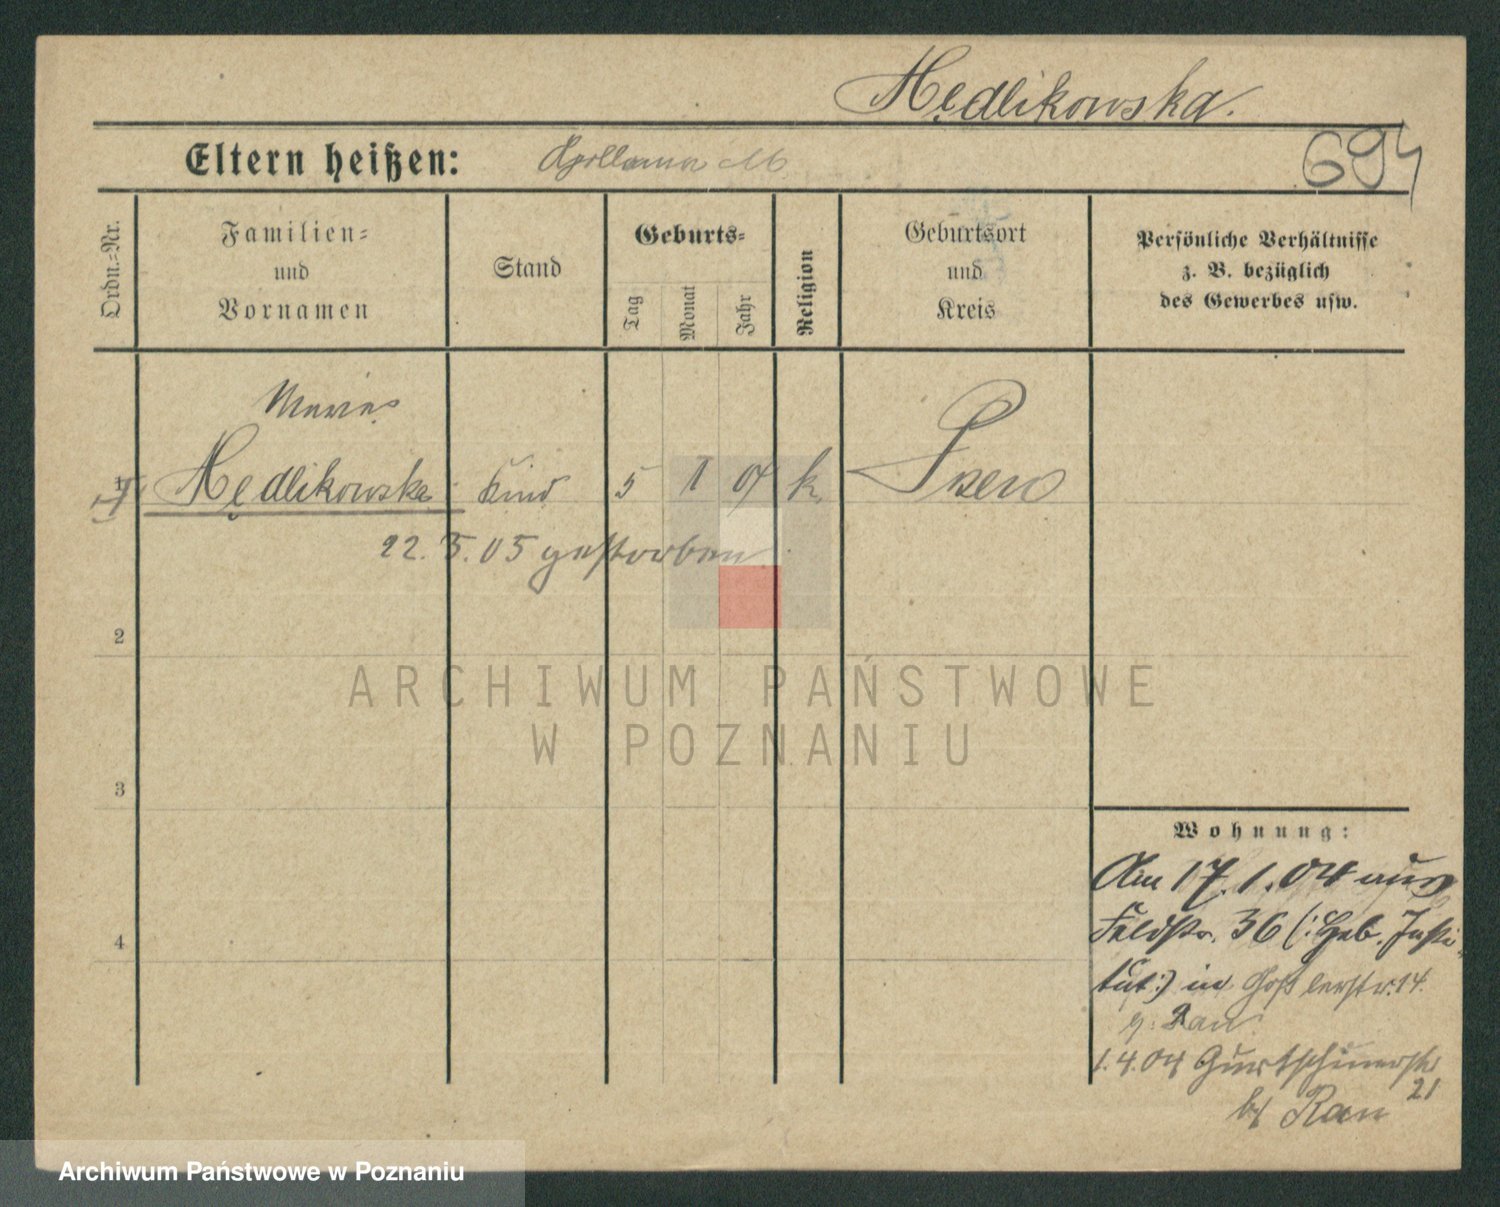 Mędlikowska.
Eltern heißen: Apollonia M.
694
Ordn.=Nr.
Familien=
und
Vornamen
Stand
Geburts=
Tag
Monat
Jahr
Religion
Geburtsort
und
Kreis
Persönliche Verhältnisse
z. B. bezüglich
des Gewerbes usw.
Maria
1 Mędlikowska Kind 5 1 04 k. Posen
22. 3. 05 gestorben
2
3
4
Wohnung:
Am 17.1.04 aus
Feldstr. 36 (: Geb. Insti-
tut :) in Goßlerstr. 14.
b.
1.4.04 Gurtschinerstr
21
bei Rau
ARCHIWUM PAŃSTWOWE
W POZNANIU
Archiwum Państwowe w Poznaniu